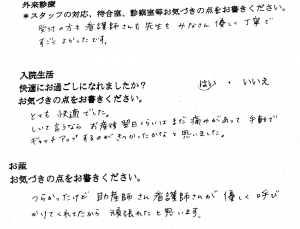 外来診療
*スタッフの対応、待合室、診察室等お気づきの点をお書きください。
受付の方も看護師さんも先生もみなさん優しく丁寧で
すごくよかったです。
入院生活
快適にお過ごしになれましたか? はい ・ いいえ
お気づきの点をお書きください。
とても快適でした。
しいて言うなら お産後翌日くらいはまだ痛みがあって手動で
ギャッチアップするのがきつかったかなと思いました。
お産
お気づきの点をお書きください。
つらかったけど 助産師さん看護師さんが優しく呼び
かけてくれてたから 頑張れたと思います。